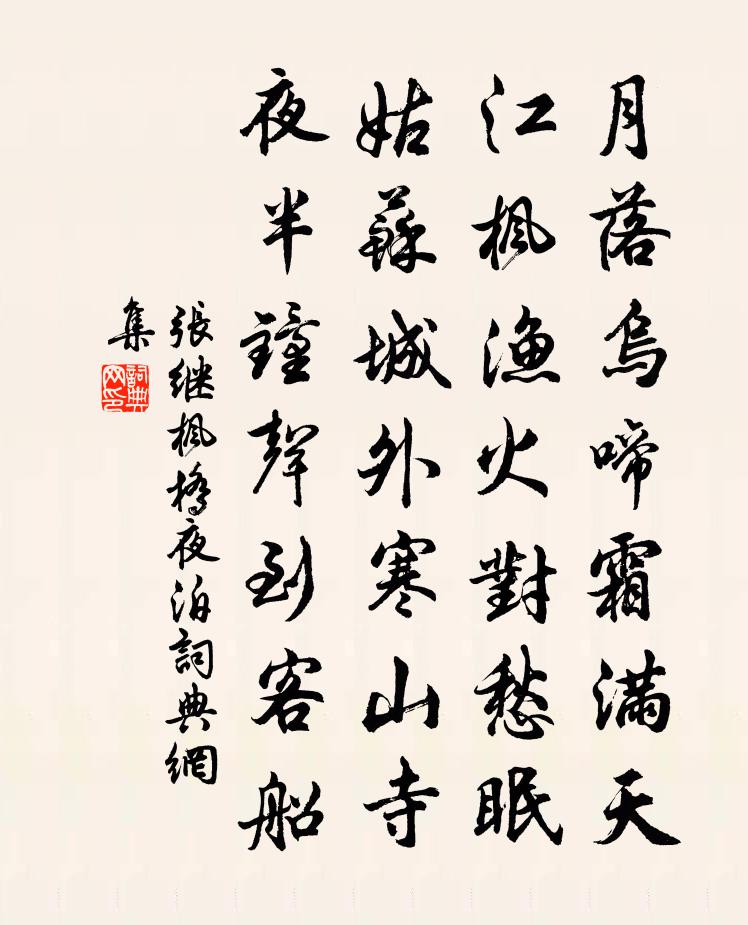 月落烏啼霜滿天
江楓漁火對愁眠
姑蘇城外寒山寺
夜半鐘聲到客船
張继楓橋夜泊詞典網
集
詞典
网印